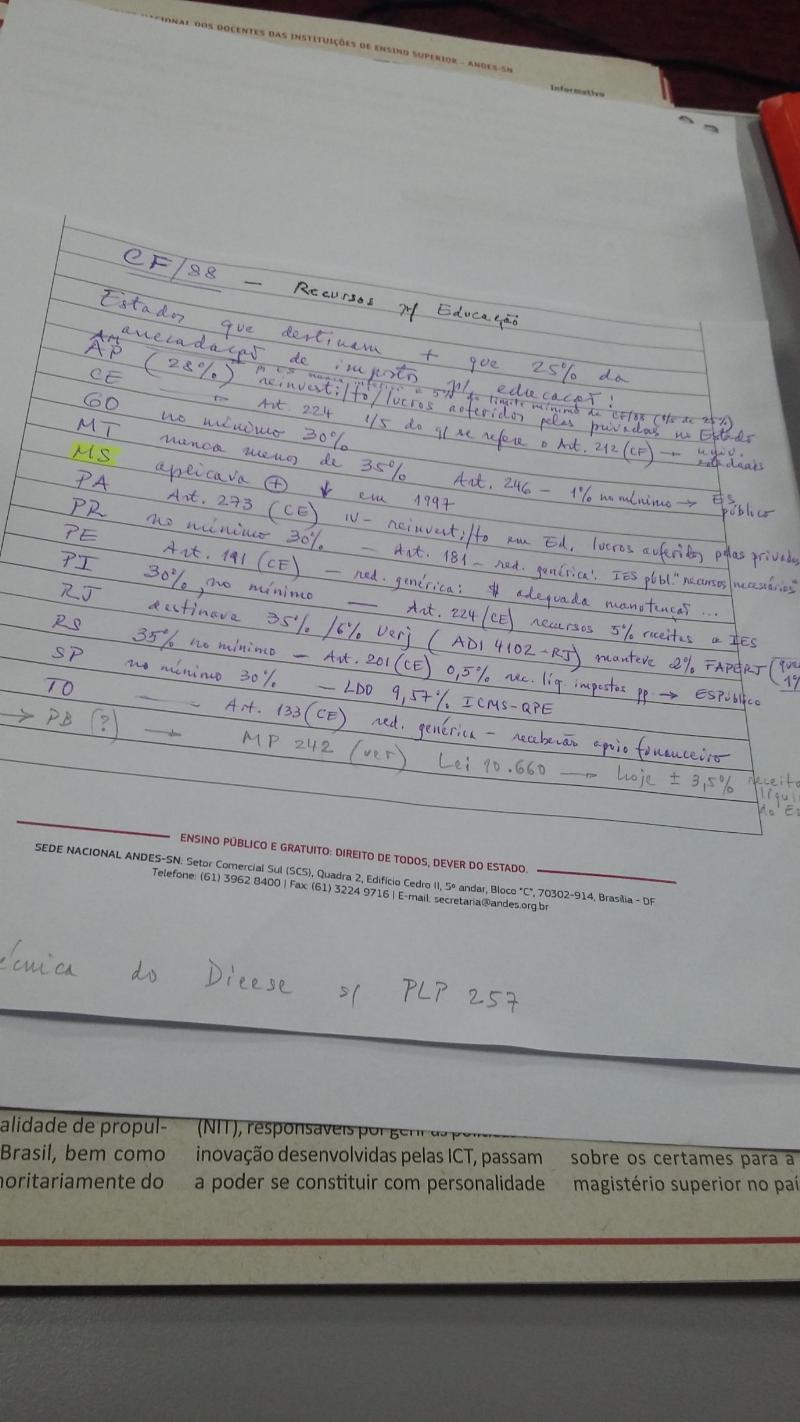 NACIONAL DOS DOCENTES DAS INSTITUIÇÕES DE ENSINO SUPERIOR - ANDES-SN
Informativo
CF/88 - Recursos p/ Educação
Estados que destinam + que 25% da
arrecadaçaõ de impostos p/ educaçaõ!
AM
AP (28%) reinvesti/to/lucros auferidos pelas privadas no Estado
CE — Art. 224 1/5 do q/ se refere o Art. 212 (CF) → univ. estaduais
GO no mínimo 30%
MT nunca menos de 35% Art. 246 - 1% no mínimo → ES público
MS aplicava + ↓ em 1997
PA Art. 273 (CE) IV- reinvesti/to em Ed. lucros auferidos pelas privadas
PR no mínimo 30% - Art. 181 - red. genérica. IES públ. "recursos necessários"
PE Art. 191 (CE) - red. genérica: $ adequada manutençaõ ...
PI 30%, no mínimo — Art. 224 (CE) recursos 5% receitas a IES
RJ destinava 35% /6% Uerj (ADI 4102-RJ) manteve 2% FAPERJ
RS 35% no mínimo - Art. 201 (CE) 0,5% rec. líq. impostos pp → ESPúblico
SP no mínimo 30% - LDO 9,57% ICMS-QPE
TO — Art. 133 (CE) red. genérica - receberão apoio financeiro
→ PB (?) → MP 242 (ver) Lei 10.660 → hoje ± 3,5% receita
ENSINO PÚBLICO E GRATUITO: DIREITO DE TODOS, DEVER DO ESTADO.
SEDE NACIONAL ANDES-SN: Setor Comercial Sul (SCS), Quadra 2, Edifício Cedro II, 5º andar, Bloco "C", 70302-914, Brasília - DF
Telefone: (61) 3962 8400 | Fax: (61) 3224 9716 | E-mail: secretaria@andes.org.br
écnica do Dieese s/ PLP 257
alidade de propul-
Brasil, bem como
noritariamente do
(NIT), responsáveis por
inovação desenvolvidas pelas ICT, passam
a poder se constituir com personalidade
sobre os certames para a
magistério superior no paí